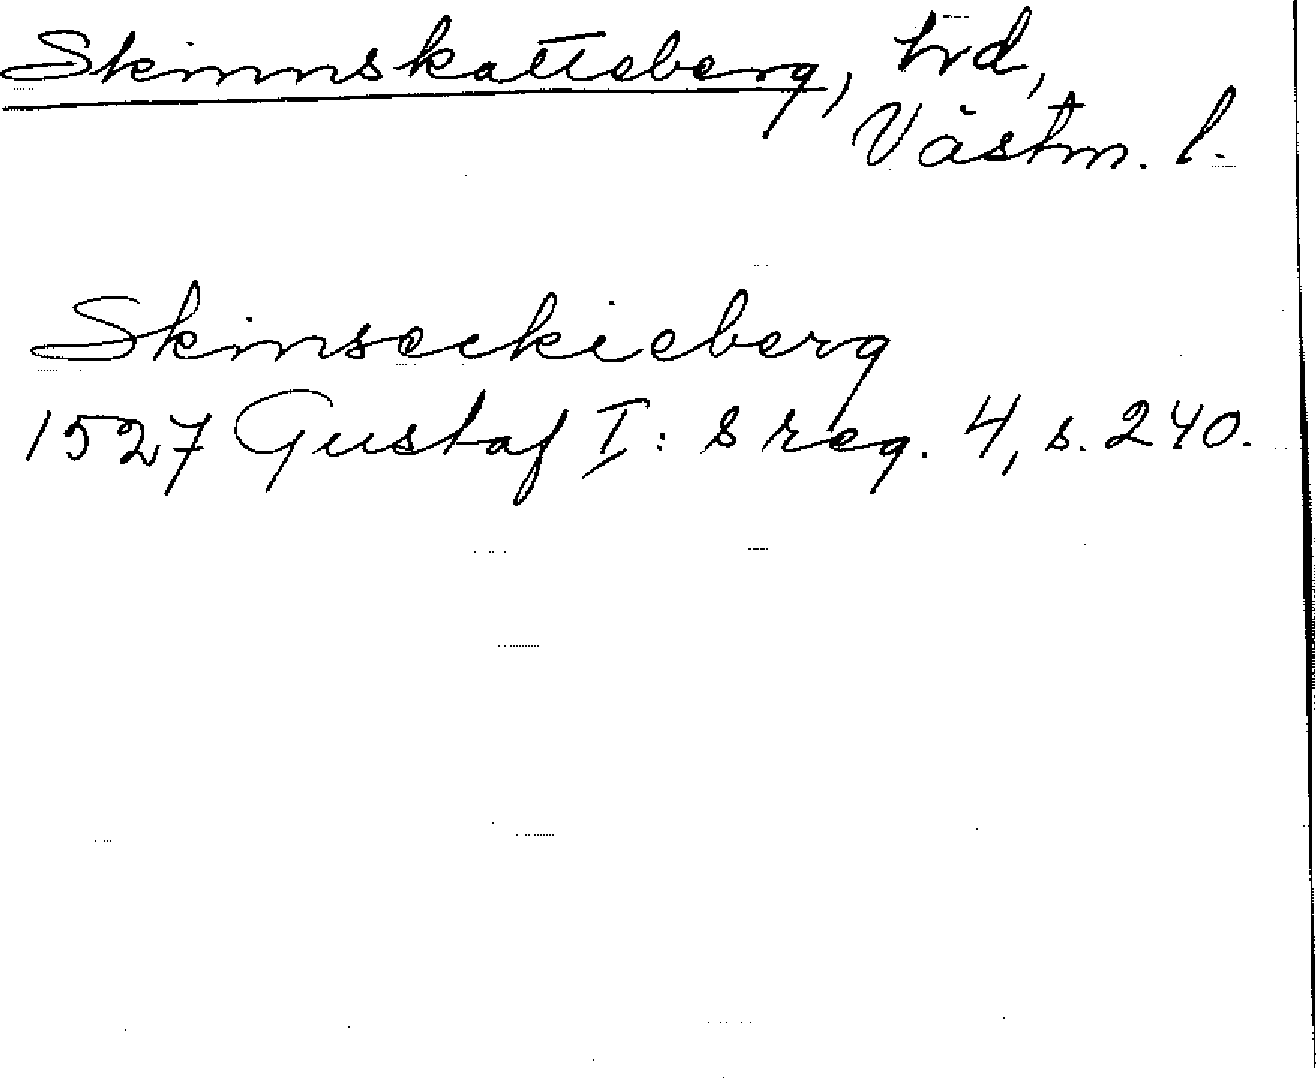 Skinnskatteberg, hrd,
Västm. l.
Skinseckieberg
1527 Gustaf I: s reg. 4, s. 240.